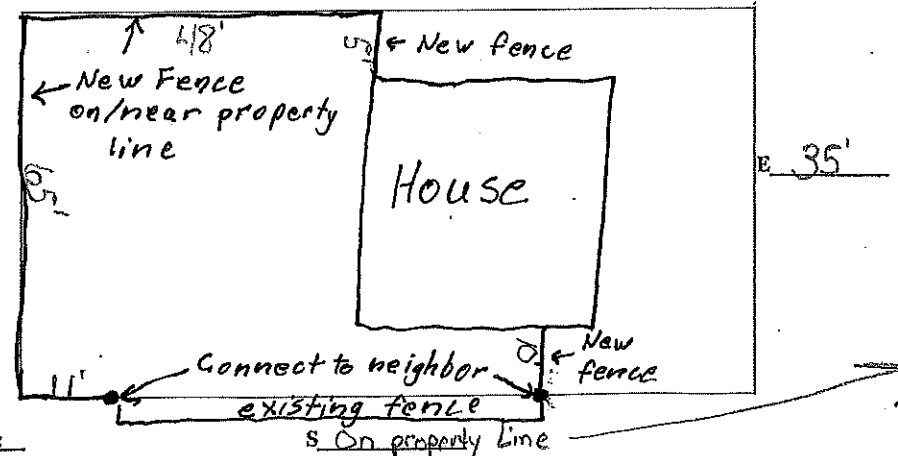 48'
5'
← New fence
← New Fence
on/near property
line
65'
House
E 35'
← New
fence
11'
Connect to neighbor
existing fence
S On property Line